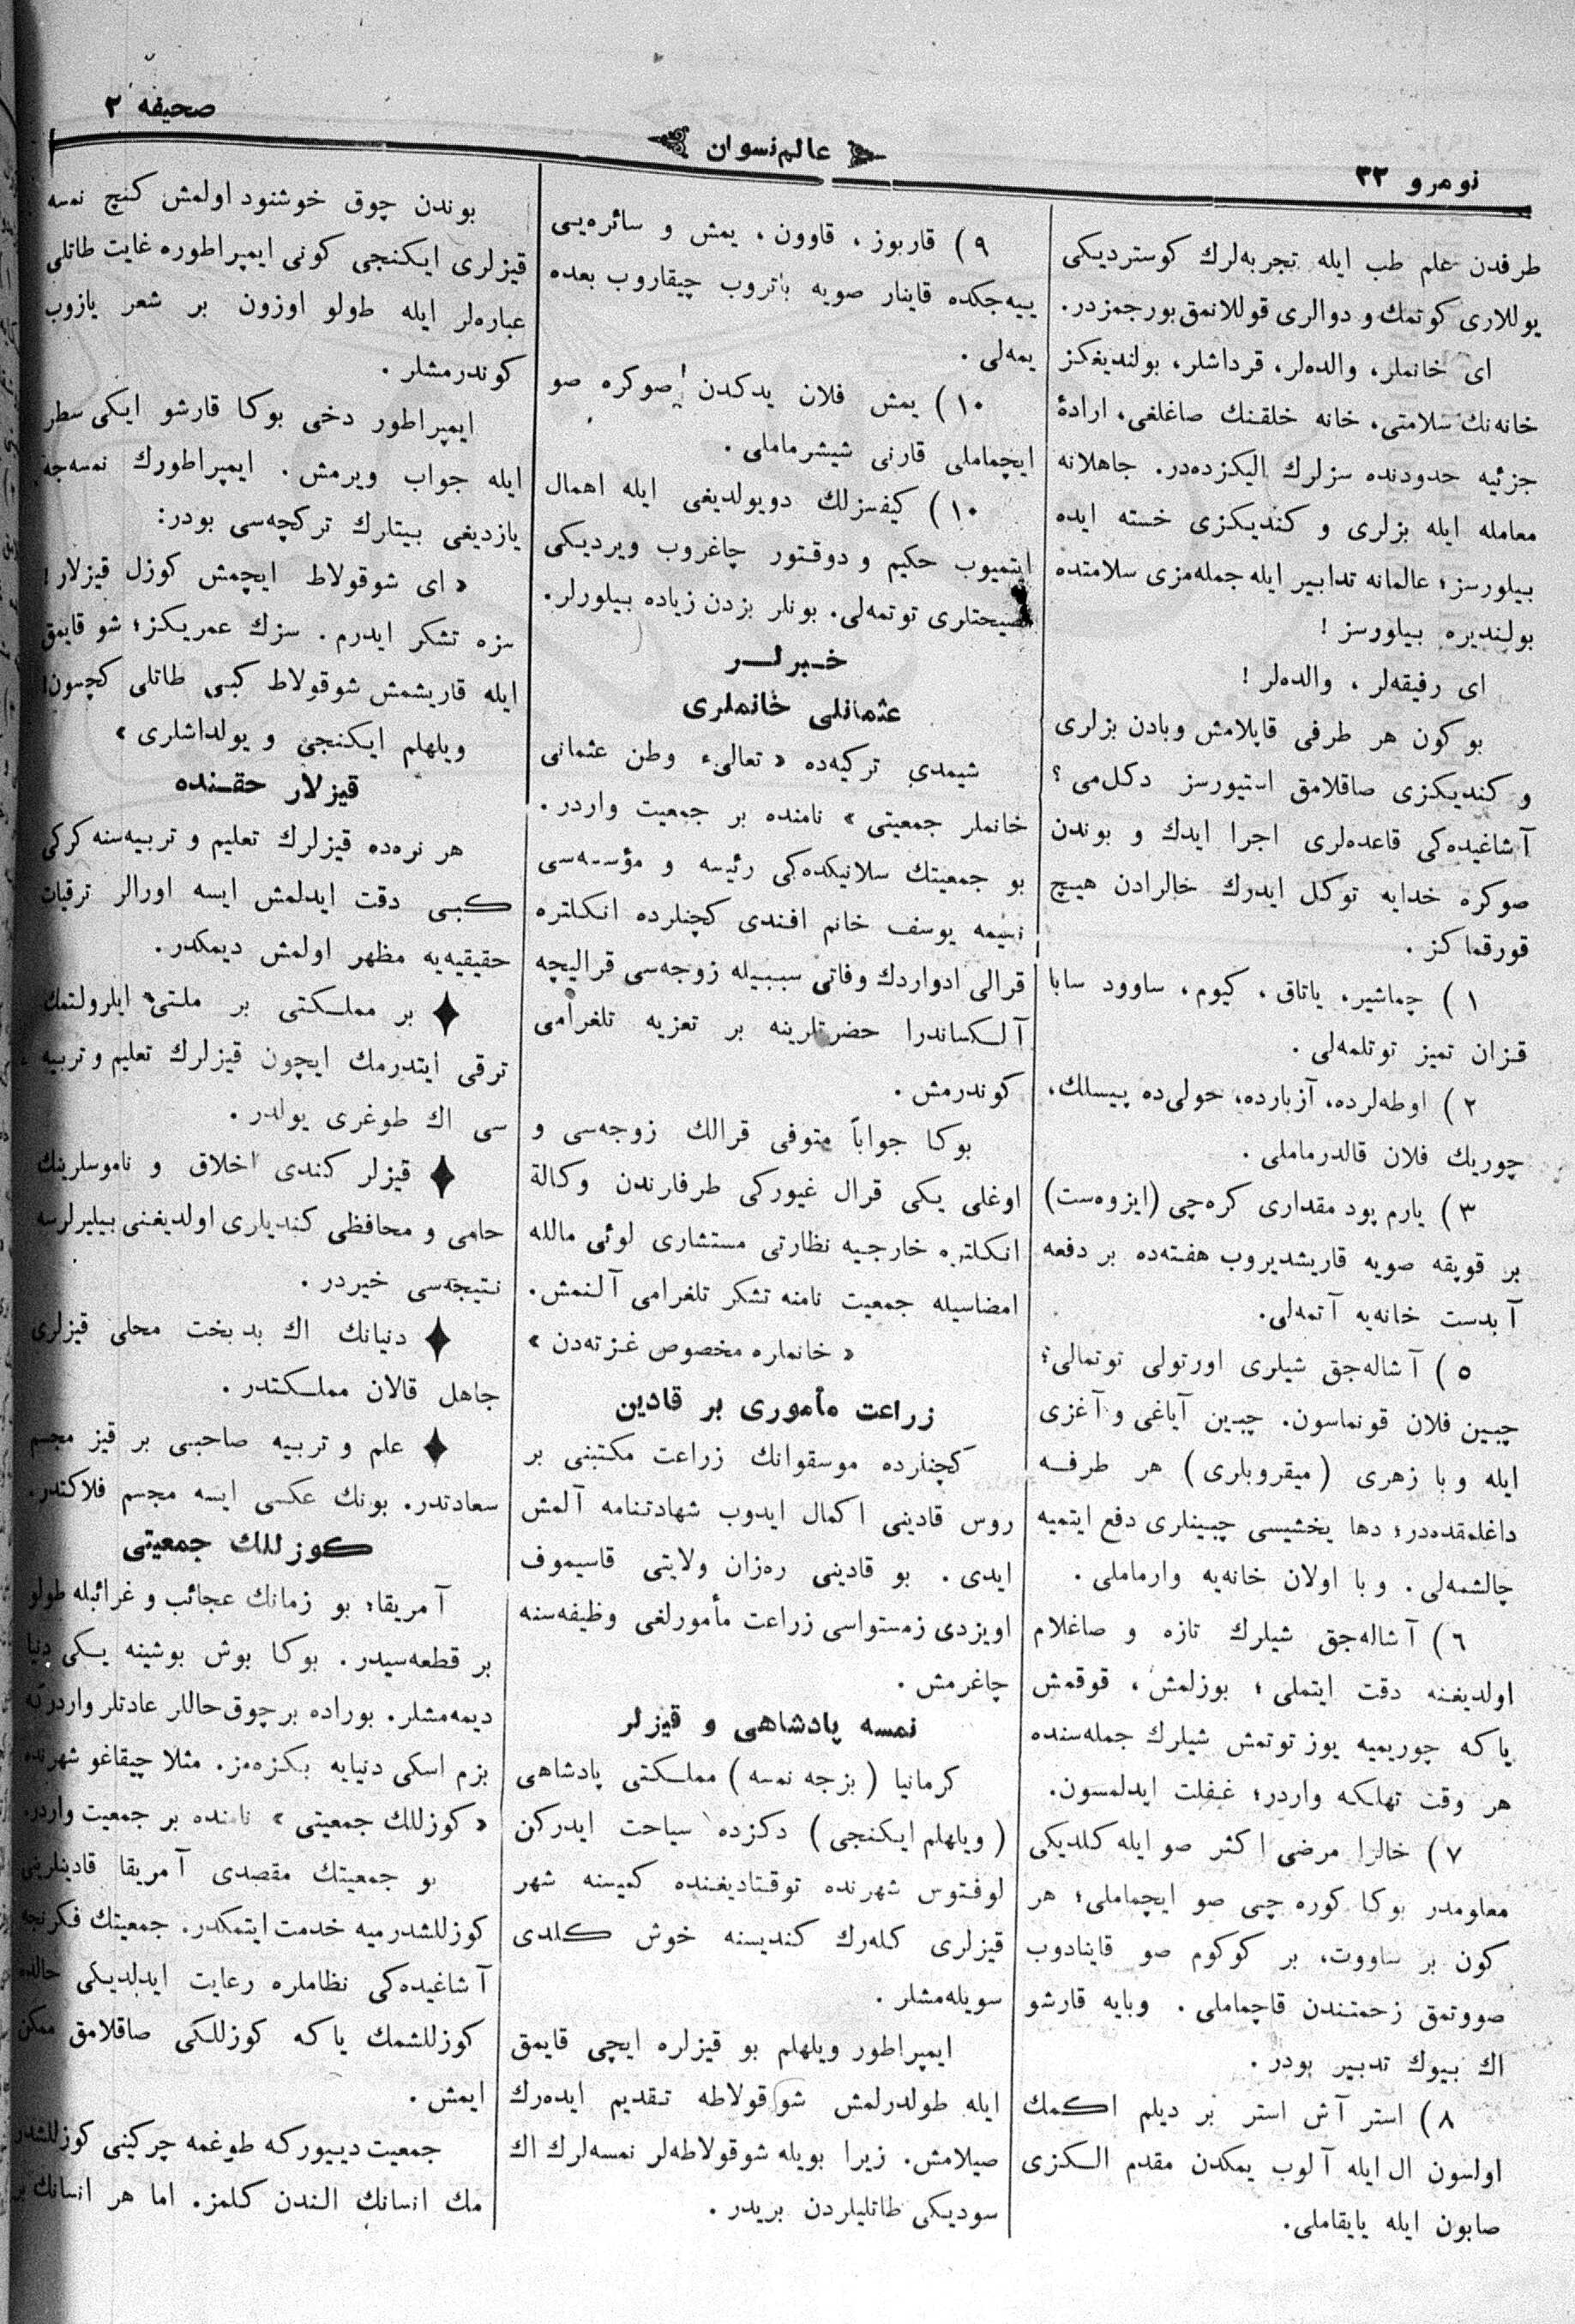 نومرو ٣٢
عالم نسوان
صحيفه ٢
طرفدن علم طب ايله تجربه‌لرك كوسترديكى
يوللارى كوتمك و دوالرى قوللانمق بورجمزدر.
اى خانملر، والده‌لر، قرداشلر، بولنديغكز
خانه‌نك سلامتى، خانه خلقنك صاغلغى، ارادهٔ
جزئيه حدودنده سزلرك اليكزده‌در. جاهلانه
معامله ايله بزلرى و كنديكزى خسته ايده
بيلورسز؛ عالمانه تدابير ايله جمله‌مزى سلامتده
بولنديره بيلورسز !
اى رفيقه‌لر ، والده‌لر !
بو كون هر طرفى قاپلامش وبادن بزلرى
و كنديكزى صاقلامق استيورسز دكل‌مى ؟
آشاغيده‌كى قاعده‌لرى اجرا ايدك و بوندن
صوكره خدايه توكل ايدرك خالرادن هيچ
قورقماكز .
١ ) چماشير، ياتاق ، كيوم، ساوود سابا
قزان تميز توتلمه‌لى .
٢ ) اوطه‌لرده، آزبارده، حولى‌ده پيسلك،
چوريك فلان قالدرماملى .
٣ ) يارم پود مقدارى كره‌چى (ايزوه‌ست)
بر قوپقه صويه قاريشديروب هفته‌ده بر دفعه
آبدست خانه‌يه آتمه‌لى.
٥ ) آشاله‌جق شيلرى اورتولى توتمالى؛
چبين فلان قونماسون. چبين آياغى و آغزى
ايله وبا زهرى (ميقروبلرى) هر طرفه
داغلمقده‌در؛ دها يخشيسى چبينلرى دفع ايتميه
چالشمه‌لى . وبا اولان خانه‌يه وارماملى .
٦ ) آشاله‌جق شيلرك تازه و صاغلام
اولديغنه دقت ايتملى ؛ بوزلمش ، قوقمش
ياكه چوريميه يوز توتمش شيلرك جمله‌سنده
هر وقت تهلكه واردر؛ غفلت ايدلمسون.
٧ ) خالرا مرضى اكثر صو ايله كلديكى
معلومدر بوكا كوره چى صو ايچماملى؛ هر
كون بر ساووت، بر كوكوم صو قاينادوب
صووتمق زحمتندن قاچماملى . وبايه قارشو
اك بيوك تدبير بودر .
٨ ) استر آش استر بر ديلم اكمك
اولسون ال ايله آلوب يمكدن مقدم الكزى
صابون ايله يايقاملى.
٩ ) قاربوز ، قاوون ، يمش و سائره‌يى
ييه‌جكده قاينار صويه باتروب چيقاروب بعده
يمه‌لى .
١٠ ) يمش فلان يدكدن صوكره صو
ايچماملى قارنى شيشرماملى .
١٠ ) كيفسزلك دويولديغى ايله اهمال
ايتميوب حكيم و دوقتور چاغروب ويرديكى
نصيحتلرى توتمه‌لى. بونلر بزدن زياده بيلورلر.
خبرلر
عثمانلى خانملرى
شيمدى تركيه‌ده « تعالىء وطن عثمانى
خانملر جمعيتى » نامنده بر جمعيت واردر .
بو جمعيتك سلانيكده‌كى رئيسه و مؤسسه‌سى
نسيمه يوسف خانم افندى كچنلرده انكلتره
قرالى ادواردك وفاتى سببيله زوجه‌سى قراليچه
آلكساندرا حضرتلرينه بر تعزيه تلغرامى
كوندرمش .
بوكا جواباً متوفى قرالك زوجه‌سى و
اوغلى يكى قرال غيوركى طرفلرندن وكالة
انكلتره خارجيه نظارتى مستشارى لوئى مالله
امضاسيله جمعيت نامنه تشكر تلغرامى آلنمش.
« خانملره مخصوص غزته‌دن »
زراعت مأمورى بر قادين
كچنلرده موسقوانك زراعت مكتبنى بر
روس قادينى اكمال ايدوب شهادتنامه آلمش
ايدى . بو قادينى ره‌زان ولايتى قاسيموف
اويزدى زمستواسى زراعت مأمورلغى وظيفه‌سنه
چاغرمش .
نمسه پادشاهى و قيزلر
كرمانيا ( بزجه نمسه ) مملكتى پادشاهى
( ويلهلم ايكنجى ) دكزده سياحت ايدركن
لوفتوس شهرنده توقتاديغنده كميسنه شهر
قيزلرى كله‌رك كنديسنه خوش كلدى
سويله‌مشلر .
ايمپراطور ويلهلم بو قيزلره ايچى قايمق
ايله طولدرلمش شوقولاطه تقديم ايده‌رك
صيلامش. زيرا بويله شوقولاطه‌لر نمسه‌لرك اك
سوديكى طاتليلردن بريدر .
بوندن چوق خوشنود اولمش كنچ نمسه
قيزلرى ايكنجى كونى ايمپراطوره غايت طاتلى
عباره‌لر ايله طولو اوزون بر شعر يازوب
كوندرمشلر .
ايمپراطور دخى بوكا قارشو ايكى سطر
ايله جواب ويرمش . ايمپراطورك نمسه‌جه
يازديغى بيتلرك تركچه‌سى بودر:
« اى شوقولاط ايچمش كوزل قيزلار!
سزه تشكر ايدرم . سزك عمريكز؛ شو قايمق
ايله قاريشمش شوقولاط كبى طاتلى كچسون!
ويلهلم ايكنجى و يولداشلرى »
قيزلار حقنده
هر نره‌ده قيزلرك تعليم و تربيه‌سنه كركى
كبى دقت ايدلمش ايسه اورالر ترقيات
حقيقيه‌يه مظهر اولمش ديمكدر.
♦ بر مملكتى بر ملتى ايلرولتمك
ترقى ايتدرمك ايچون قيزلرك تعليم و تربيه
سى اك طوغرى يولدر .
♦ قيزلر كندى اخلاق و ناموسلرينك
حامى و محافظى كنديلرى اولديغنى بيليرلرسه
نتيجه‌سى خيردر .
♦ دنيانك اك بدبخت محلى قيزلرى
جاهل قالان مملكتدر .
♦ علم و تربيه صاحبى بر قيز مجسم
سعادتدر. بونك عكسى ايسه مجسم فلاكتدر.
كوزللك جمعيتى
آمريقا؛ بو زمانك عجائب و غرائبله طولو
بر قطعه‌سيدر . بوكا بوش بوشينه يكى دنيا
ديمه‌مشلر. بوراده بر چوق حاللر عادتلر واردر كه
بزم اسكى دنيايه بكزه‌مز. مثلا چيقاغو شهرنده
« كوزللك جمعيتى » نامنده بر جمعيت واردر.
بو جمعيتك مقصدى آمريقا قادينلرينى
كوزللشدرميه خدمت ايتمكدر. جمعيتك فكرنجه
آشاغيده‌كى نظاملره رعايت ايدلديكى حالده
كوزللشمك ياكه كوزللكى صاقلامق ممكن
ايمش .
جمعيت دييوركه طوغمه چركينى كوزللشدر
مك انسانك الندن كلمز. اما هر انسانك بر